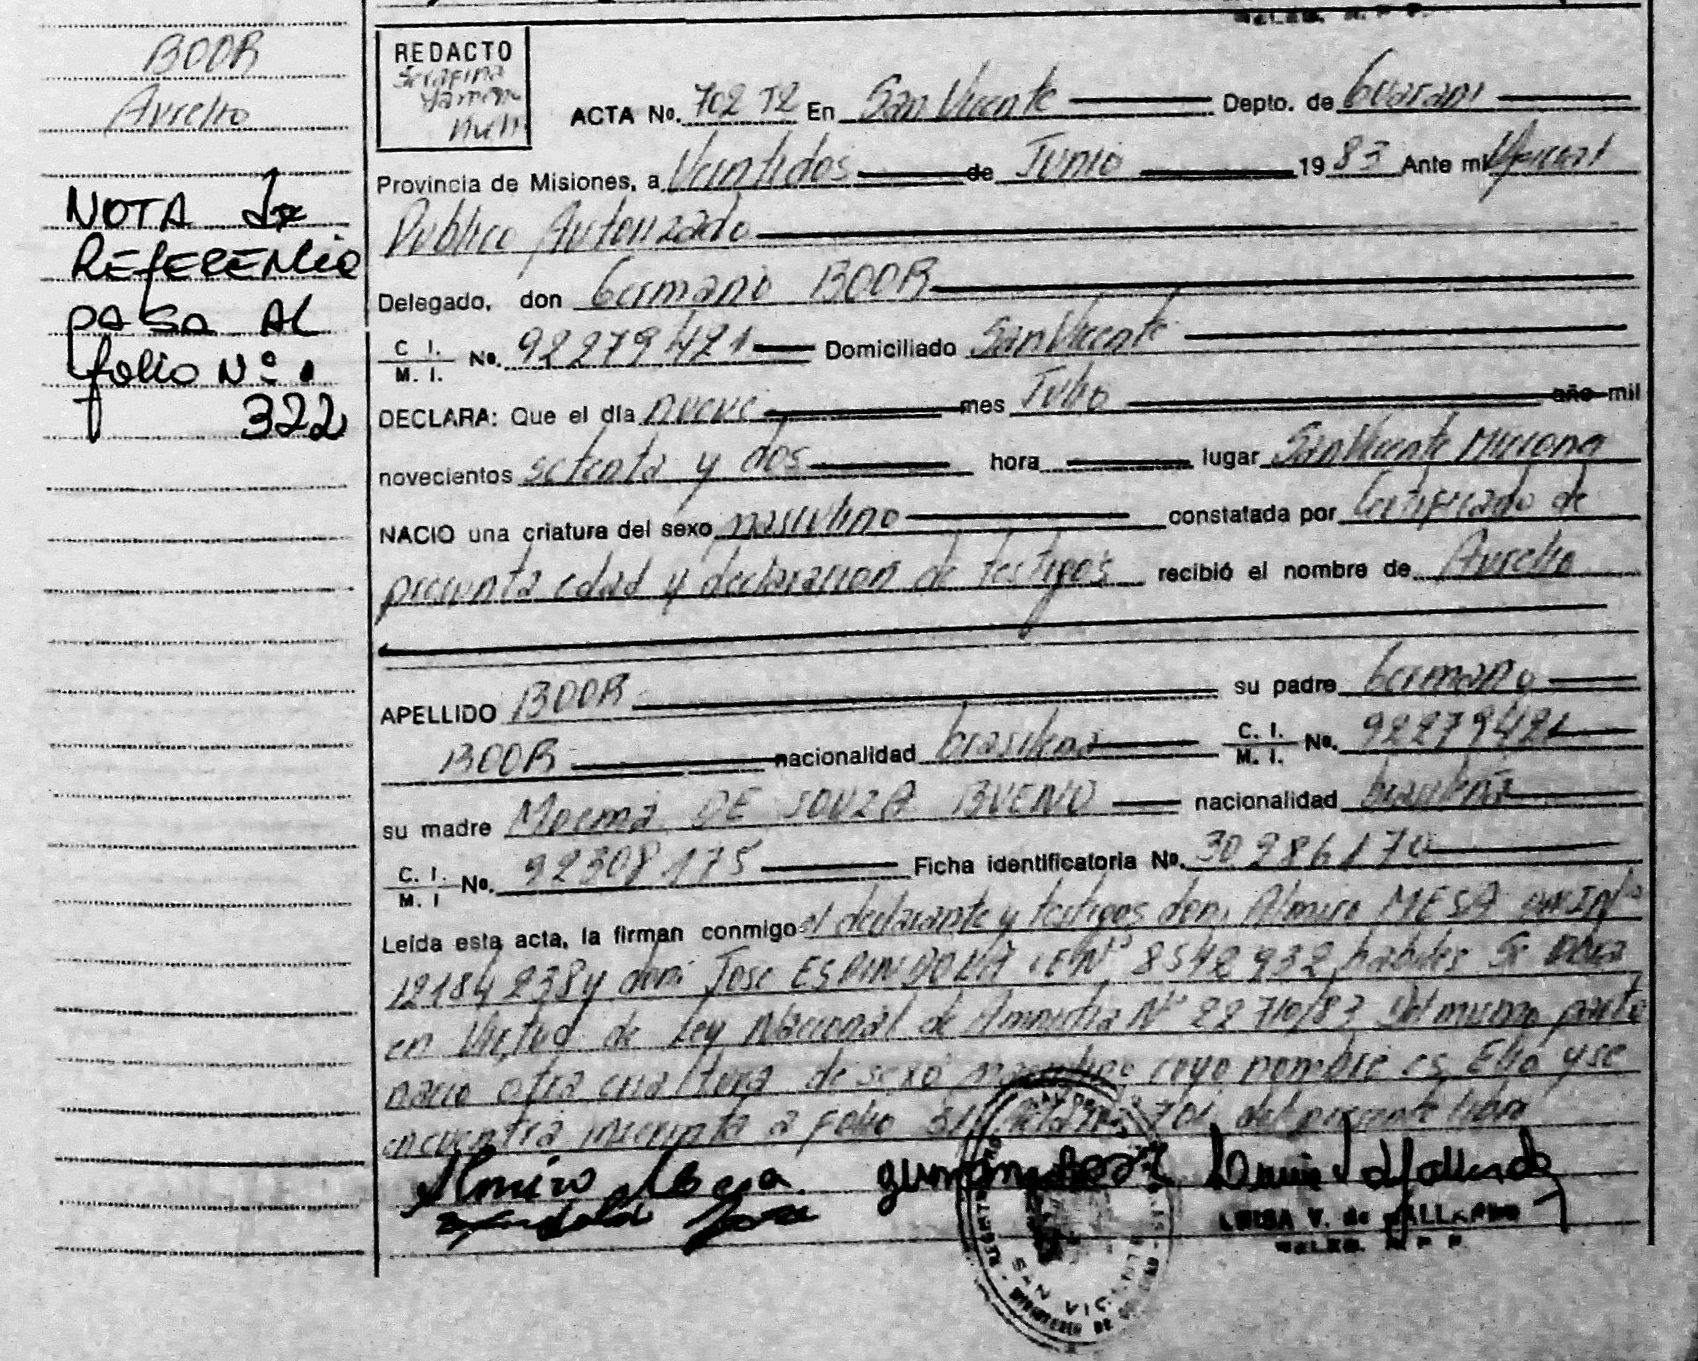 BOOR
Aurelio
NOTA de
REFERENCIA
PASA AL
folio Nº.
322
REDACTO
Serafina
Ramón
ACTA No. 702 T2 En San Vicente Depto. de Guarani
Provincia de Misiones, a Veintidos de Junio 1983 Ante mi
Publico Autorizado
Delegado, don Germano BOOR
C. I. / M. I. No. 92279421 Domiciliado San Vicente
DECLARA: Que el día nueve mes Julio año mil
novecientos setenta y dos hora lugar San Vicente Misiones
NACIO una criatura del sexo masculino constatada por Certificado de
presunta edad y declaracion de testigos recibió el nombre de Aurelio
APELLIDO BOOR su padre Germano
BOOR nacionalidad brasileña C. I. / M. I. No. 92279421
su madre Moema DE SOUZA BUENO nacionalidad brasileña
C. I. / M. I No. 92308175 Ficha identificatoria No. 30.986.170
Leída esta acta, la firman conmigo el declarante y testigos don: Almiro MESA
12184238 y don: Jose ESPINDOLA LE Nº 8542932 habiles Se
en Virtud de Ley Nacional de Amnistia Nº 22710/83 Del mismo parto
nacio otra criatura de sexo masculino cuyo nombre es Elio y se
encuentra inscripta a Folio 311 701 del presente libro
Almiro Mesa
Espindola Jose
LUISA V. de GALLARDO
SAN VICENTE